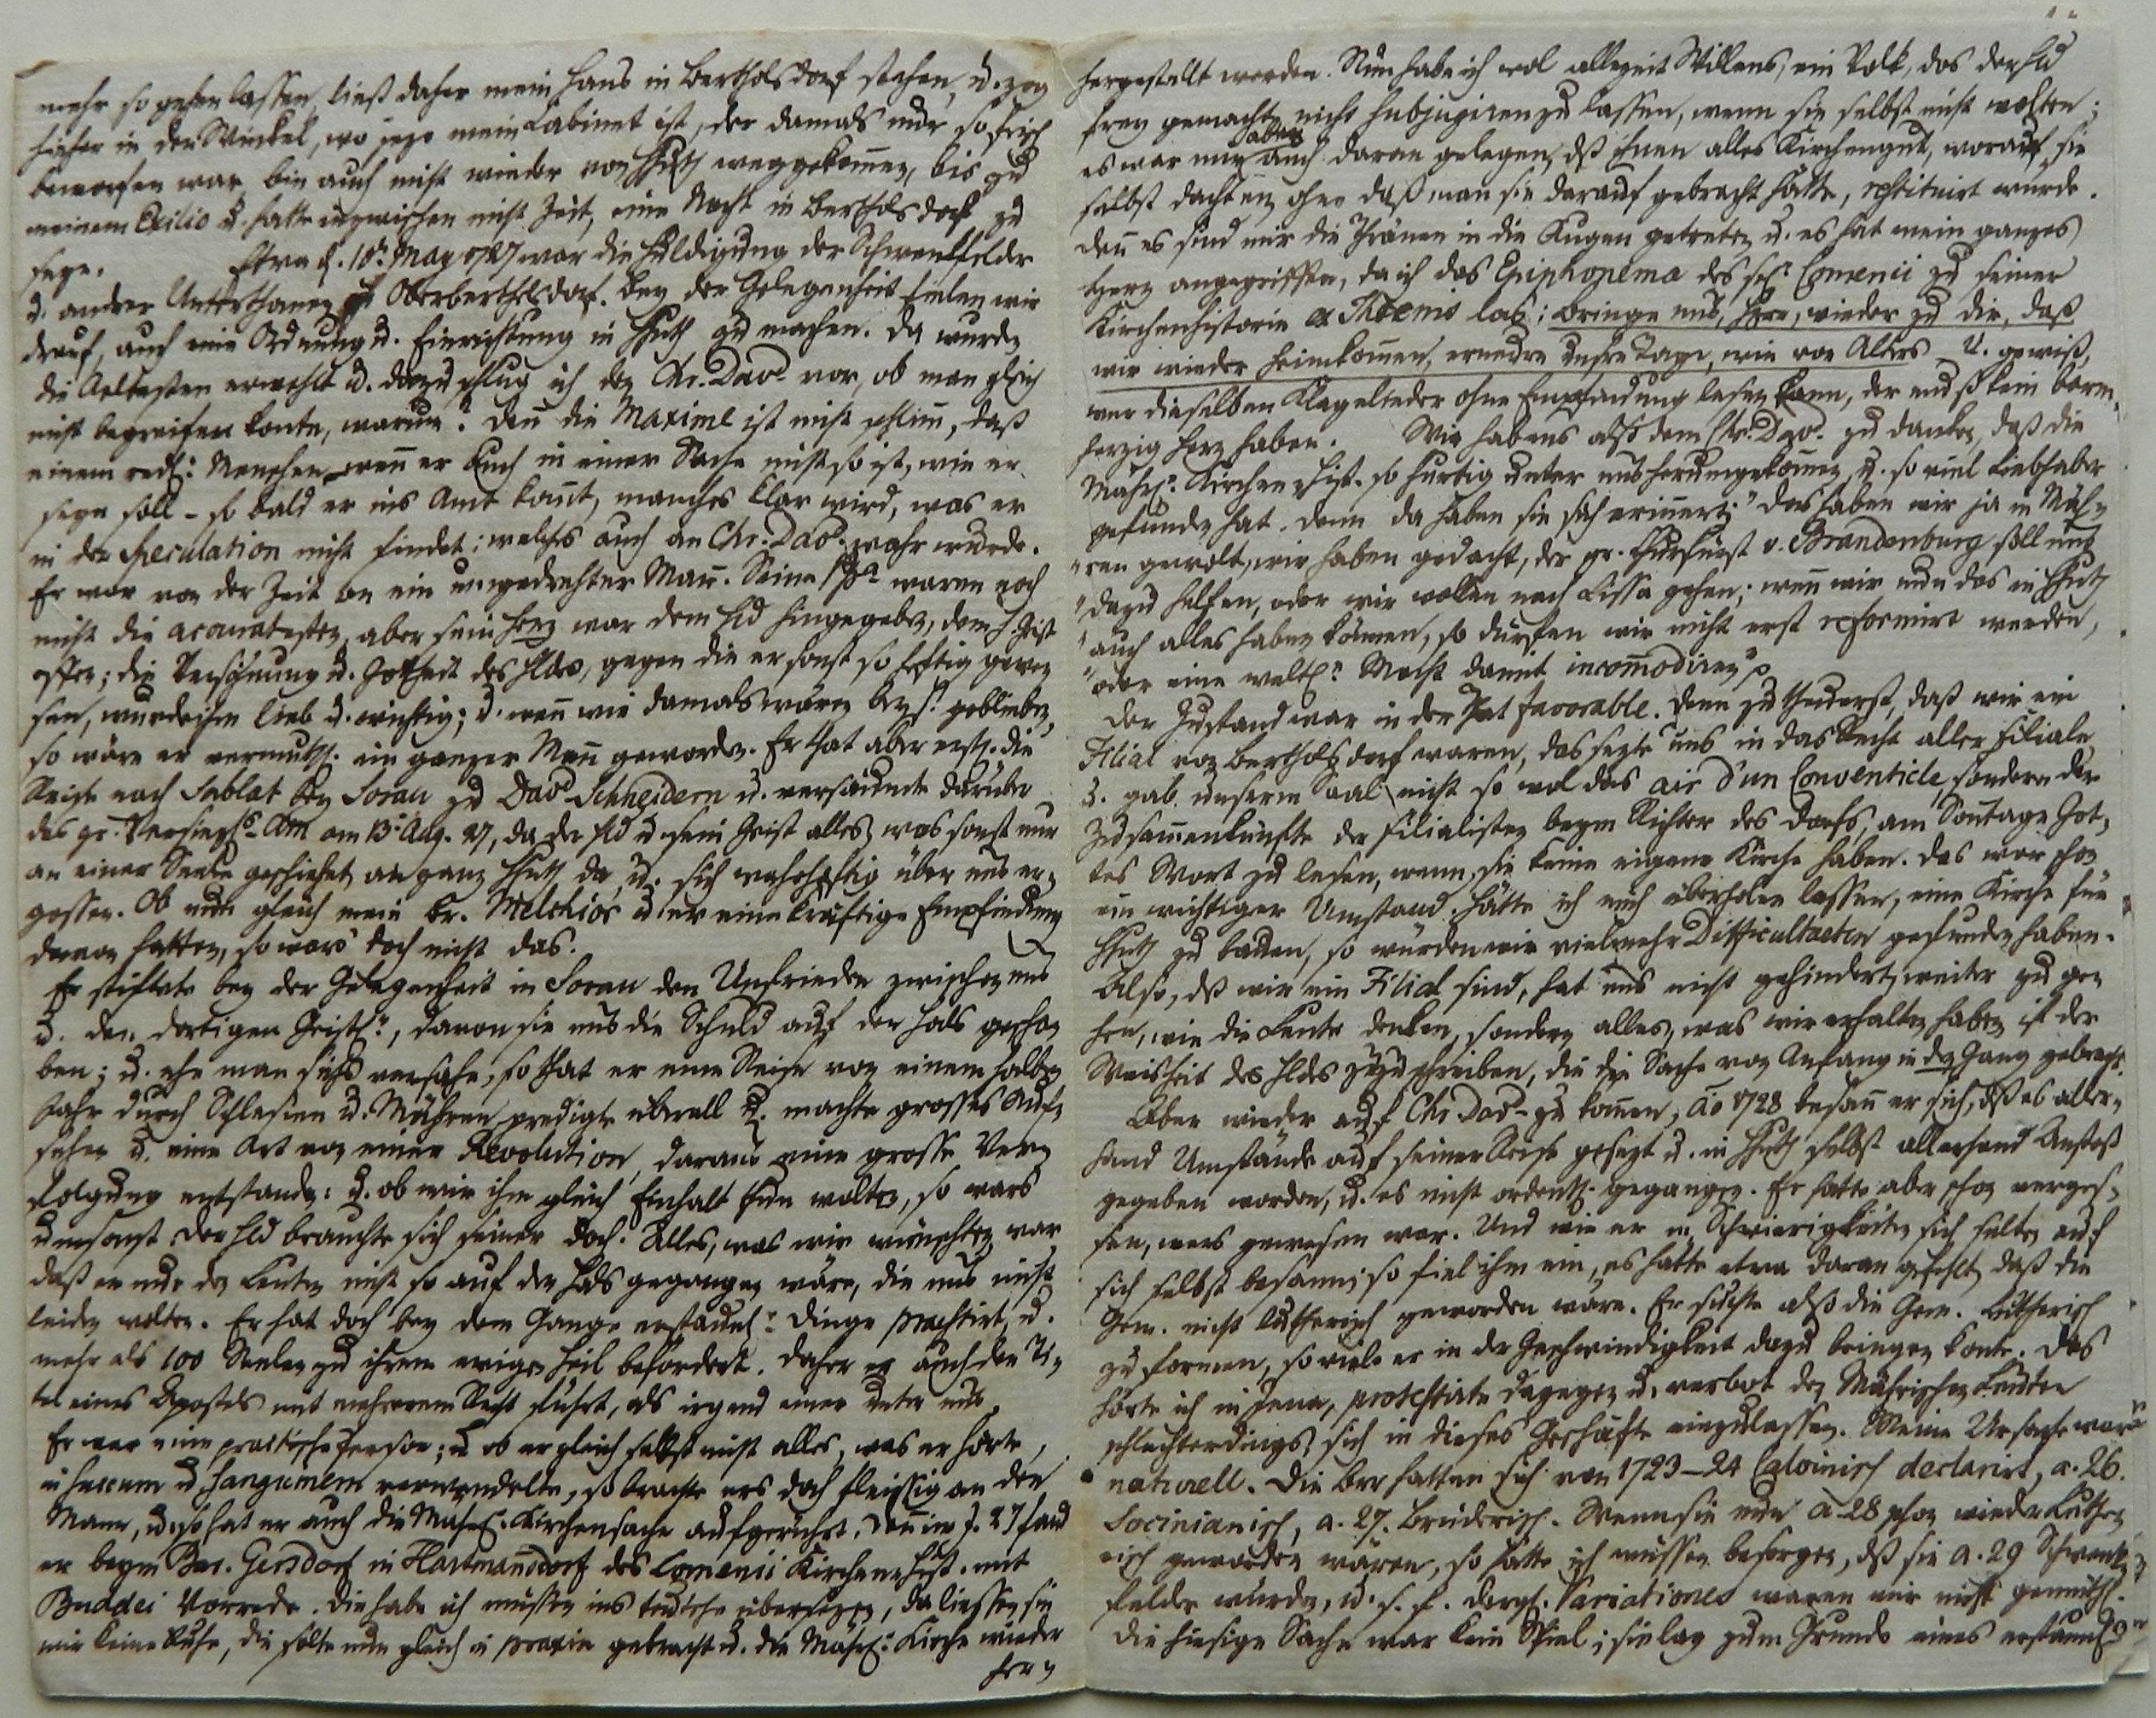 mehr so gehen lassen, ließ daher mein Haus in Bertholsdorf stehen, u. zog
hieher in den Winkel, wo jezo mein Cabinet ist, der damals nur so frisch
beworfen war, bin auch nicht wieder von Hhuth weggekom̄en, bis zu
meinem Exilio u. hatte inzwischen nicht Zeit, eine Nacht in Bertholsdorf zu
seyn. Etwa d. 18t. May 1727 war die Huldigung der Schwenkfelder
u. andrer Unterthanen in Oberbertholsdorf. Bey der Gelegenheit fielen wir
drauf, auch eine Ordnung u. Einrichtung in Hhuth zu machen. Da wurden
die Aeltesten erwehlt u. dazu schlug ich den Chr. Dav. vor, ob man gleich
nicht begreifen konte, warum? Den̄ die Maxime ist nicht schlim̄, daß
einem redl: Menschen, wen̄ er auch in einer Sache nicht so ist, wie er
seyn soll - so bald er ins Amt kom̄t, manches klar wird, was er
in der Speculation nicht findet: welches auch an Chr. Dav. wahr wurde.
Er war von der Zeit an ein umgedrehter Man̄. Seine waren noch
nicht die acouratesten, aber sein Herz war dem Hld hingegeben, dem h. Geist
offen; die Versöhnung u. Gottheit des Hldes, gegen die er sonst so heftig gewe-
sen, wurde ihm lieb u. wichtig; u. wen̄ wir damals wären geblieben,
so wäre er vermuthl. ein ganzer Man̄ geworden. Er that aber erstl. die
Reise nach Sablat bey Sorau zu Dav. Schneidern u. versäumte darüber
das gr. Am 13. Aug. 27, da der Hld u. sein Geist alles, was sonst nur
an einer Seele geschiehet, an ganz Hhuth that, u. sich wahrhaftig über uns er-
gossen. Ob nun gleich mein Br. Melchior u. er eine kräftige Empfindung
davon hatten, so wars doch nicht das.
Er stiftete bey der Gelegenheit in Sorau den Unfrieden zwischen uns
u. den dortigen Geistl:n, davon sie uns die Schuld auf den Hals gescho-
ben; u. ehe man sichs versahe, so that er eine Reise von einem halben
Jahr durch Schlesien u. Mähren, predigte überall u. machte grosses Auf-
sehen u. eine Art von einer Revolution, daraus eine grosse Ver-
folgung entstanden: u. ob wir ihm gleich Einhalt thun wolten, so wars
umsonst. Der Hld brauchte sich seiner doch. Alles, was wir wünschten, war,
daß er nur den Leuten nicht so auf den Hals gegangen wäre, die uns nicht
leiden wolten. Er hat doch bey dem Gange erstaunl: Dinge prestirt, u.
mehr als 100 Seelen zu ihrem ewigen Heil befördert. Daher er auch den Ti-
tel eines Apostels mit mehrerem Recht führt, als irgend einer unter uns.
Er war eine practische Person; u. ob er gleich selbst nicht alles, was er hörte,
in succum u. sanguinem verwandelte, so brachte ers doch fleissig an den
Mann, u. so hat er auch die Mähr. Kirchensache aufgerührt. Den̄ im J. 27 fand
er beym Bar. Gersdorf in Hartman̄sdorf des Comenii Kirchen-Hist. mit
Buddei Vorrede. Die habe ich müssen ins teutsche übersezen, da liessen sie
mir keine Ruhe, die solte nun gleich in praxin gebracht u. die Mähr: Kirche wieder
her-
hergestellt werden. Nun habe ich wol allezeit Willens, ein Volk, das der Hld
frey gemacht, nicht subjugiren zu lassen, wenn sie selbst nicht wolten;
es war mir aber auch daran gelegen, dß ihnen alles Kirchengut, worauf sie
selbst dachten, ohne daß man sie darauf gebracht hätte, restituirt würde.
Den̄ es sind mir die Thränen in die Augen getreten u. es hat mein ganzes
Herz angegriffen, da ich das Epiphonema des sel. Comenii zu seiner
Kirchenhistorie ex Threnis las: Bringe uns, Herr, wieder zu dir, daß
wir wieder heimkom̄en, erneure unsre Tage, wie vor Alters. U. gewiß,
wer dieselben Klagelieder ohne Empfindung lesen kann, der muß kein barm-
herzig Herz haben. Wir habens also dem Chr. Dav. zu danken, daß die
Mähr: Kirchen-Hist. so hurtig unter uns herumgekom̄en, u. so viel Liebhaber
gefunden hat. Denn da haben sie sich erinnert: "Das haben wir ja in Mäh-
"ren gewolt, wir haben gedacht, der gr. Churfürst v. Brandenburg soll uns
"dazu helfen, oder wir wollen nach Lissa gehen; wen̄ wir nun das in Hhuth
"auch alles haben können, so dürfen wir nicht erst reformirt werden,
"oder eine weltl:e Macht damit incom̄odiren"
Der Zustand war in der That favorable. Denn zu theuerst, daß wir ein
Filial von Bertholsdorf waren, das sezte uns in das Recht aller Filiale,
u. gab unserm Saal nicht so wol das air d'un Conventicle, sondern der
Zusam̄enkünfte der Filialisten beym Richter des Dorfs, am Son̄tage Got-
tes Wort zu lesen, wenn sie keine eigene Kirche haben. Das war schon
ein wichtiger Umstand. Hätte ich mich überholen lassen, eine Kirche für
Hhuth zu bauen, so würden wir vielmehr Difficultaeten gefunden haben.
Also, dß wir ein Filial sind, hat uns nicht gehindert, weiter zu ge-
hen, wie die Leute denken, sondern alles, was wir erhalten haben, ist der
Weisheit des Hldes zuzuschreiben, die die Sache von Anfang in den Gang gebracht.
Aber wieder auf Chr. Dav. zu kom̄en, Ao 1728 besan̄ er sich, dß es aller-
hand Umstände auf seiner Reise gesezt u. in Hhuth selbst allerhand Anstoß
gegeben worden, u. es nicht ordentl. gegangen. Er hatte aber schon verges-
sen, was gewesen war. Und wie er in Schwierigkeiten sich selten auf
sich selbst besann; so fiel ihm ein, es hätte etwa daran gefehlt, daß die
Gem. nicht Lutherisch geworden wäre. Er suchte also die Gem. Lutherisch
zu formen, so viele er in der Geschwindigkeit dazu bringen konte. Das
hörte ich in Jena, protestirte dagegen u. verbot den Mährischen Leuten
schlechterdings, sich in dieses Geschäfte einzulassen. Meine Ursache war
naturell. Die Brr hatten sich von 1723-24 Calvinisch declarirt, a. 26.
Socinianisch, a. 27. Brüderisch. Wenn sie nun a. 28 schon wieder Luthe-
risch geworden wären, so hätte ich müssen besorgen, dß sie a. 29 Schwenk-
felder würden, u. s. f. dergl. Variationes waren mir nicht gemüthl.
Die hiesige Sache war kein Spiel; sie lag zum Grunde eines erstaunl: